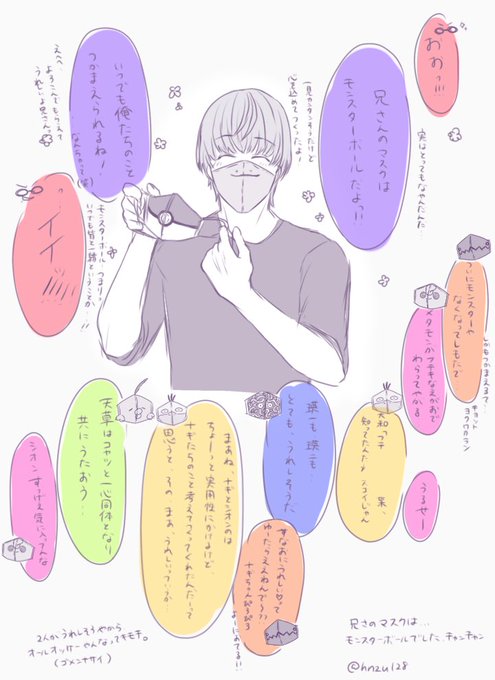 おおっ!!!
実はとってもなやんだんだ…
兄さんのマスクは
モンスターボールだよっ!!
一見カンタンそうだけど
心を込めてつくったよ!
いつでも俺たちのこと
つかまえられるね!
なんちゃって(笑)
えへへ、
よろこんでもらえて
うれしいよ兄さん。
っ…イイッ!!!
モンスターボール つまりっ…
いつでも皆と一緒ということか…!!
ついにモンスターや
なくなってしもたで
しかもつかまえるって
キョット
ヨクワカラン
メタモンがステキなえがおで
わらってやがる
うるせー
大和っ子
知ってたんだ!スゴイじゃん
瑛二も 瑛二も…
とても、うれしそうだ
すなおにうれしい♡て
ゆーたらええねんで~??
ナギちゃん
まぁね、ナギとシオンのは
ちょーっと実用性にかけるけど、
ナギたちのこと考えてつくってくれたんだーって
思うと、その、まぁ、うれしいっていうか
天草はコヤツと一心同体となり
共にうたおう…
シオン すっげえ気に入ってんな
2人がうれしそうやから
オールオッケーやんなってキモチ。
(ゴメンナサイ)
兄さのマスクは…
モンスターボールでした、チャンチャン
@hnzu128